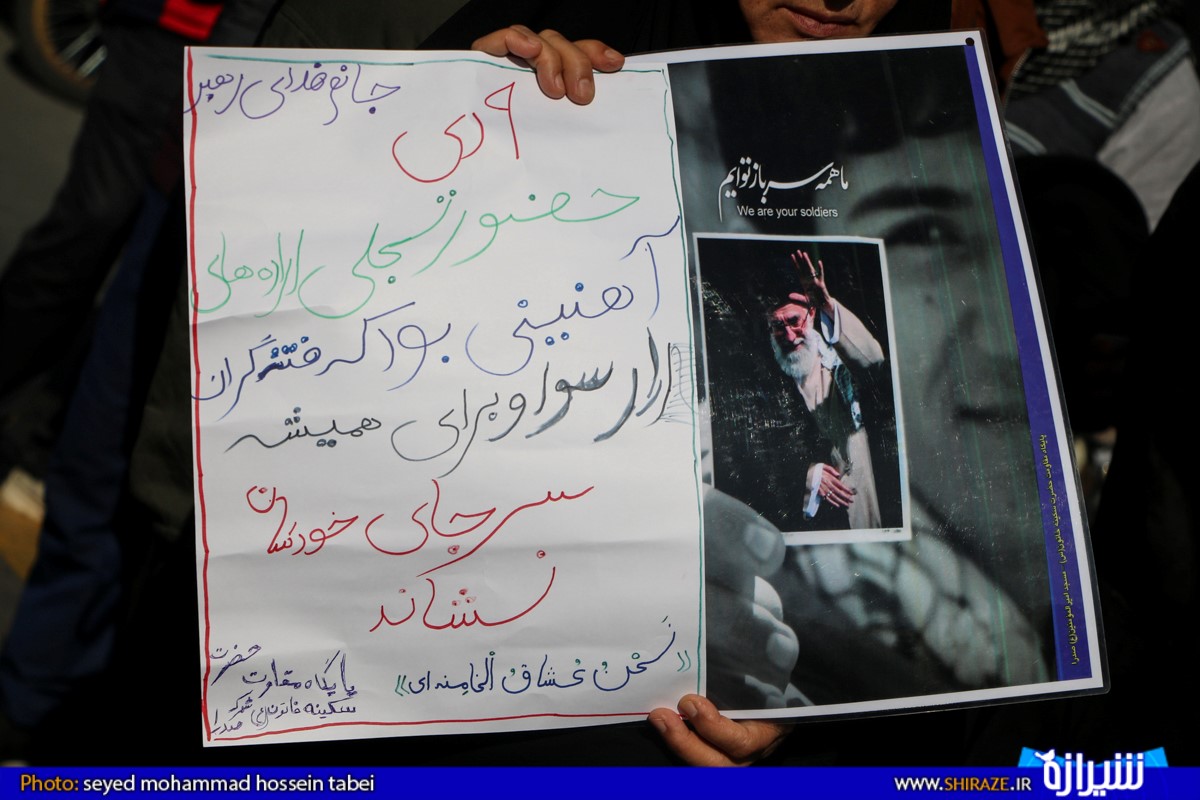 جانم فدای رهبر
۹ دی
حضور تسجلی اراده های
آهنینی بود که فتنه گران
را رسوا و برای همیشه
سر جای خودشان
نشاند
«نَحنُ عُشاقُ الخامنه ای»
حضرت
پایگاه مقاومت
سکینه خاتون(س) شهرک
صدرا
ما همه سرباز توایم
We are your soldiers
پایگاه مقاومت حضرت سکینه خاتون(س) مسجد امیرالمومنین(ع) صدرا
Photo: seyed mohammad hossein tabei
WWW.SHIRAZE.IR
شیرازه